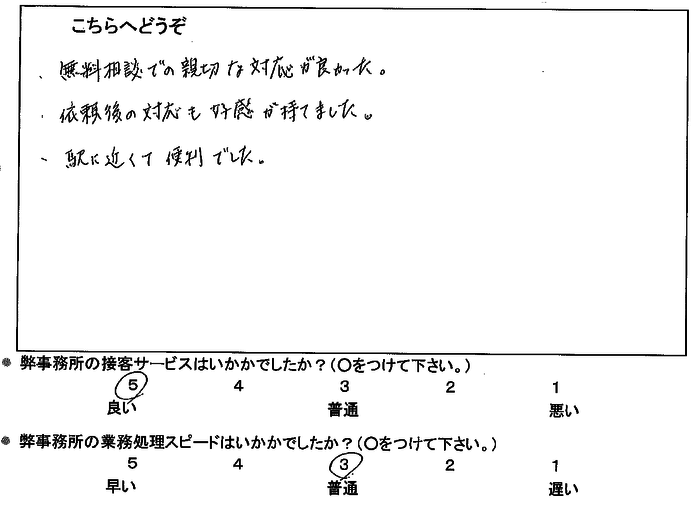 こちらへどうぞ
・無料相談での親切な対応が良かった。
・依頼後の対応も好感が持てました。
・駅に近くて便利でした。
● 弊事務所の接客サービスはいかかでしたか？（○をつけて下さい。）
5 4 3 2 1
良い 普通 悪い
● 弊事務所の業務処理スピードはいかかでしたか？（○をつけて下さい。）
5 4 3 2 1
早い 普通 遅い